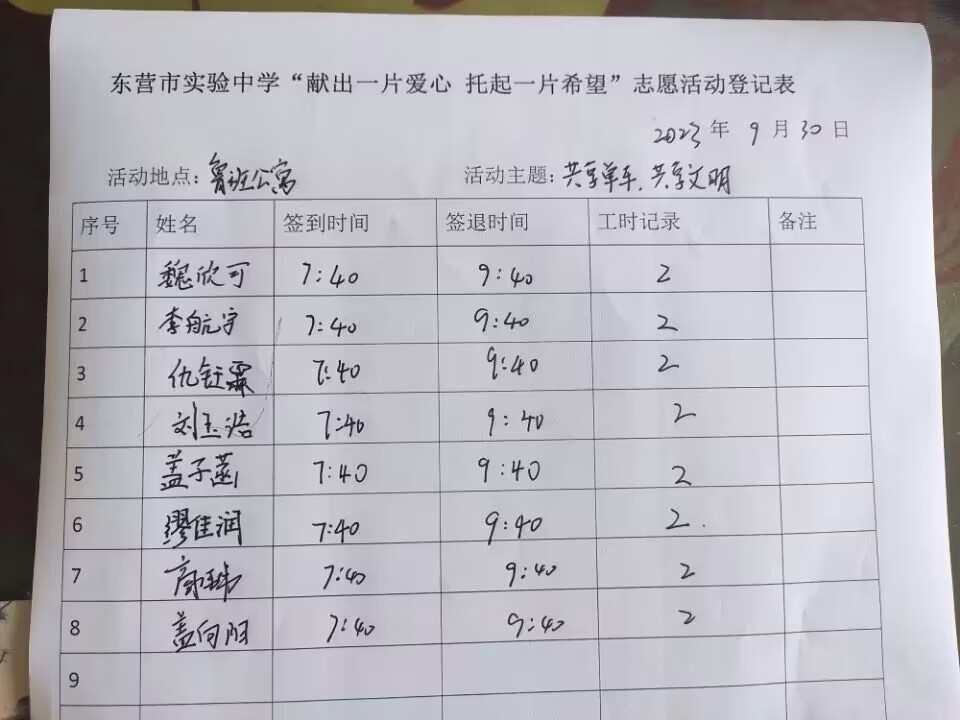 东营市实验中学“献出一片爱心 托起一片希望”志愿活动登记表
2023 年 9 月 30 日
活动地点：鲁班公寓 活动主题：共享单车，共享文明
序号 姓名 签到时间 签退时间 工时记录 备注
1 魏欣可 7:40 9:40 2
2 李航宇 7:40 9:40 2
3 仇钰霖 7:40 9:40 2
4 刘玉浩 7:40 9:40 2
5 盖子菡 7:40 9:40 2
6 缪佳润 7:40 9:40 2
7 7:40 9:40 2
8 盖向阳 7:40 9:40 2
9